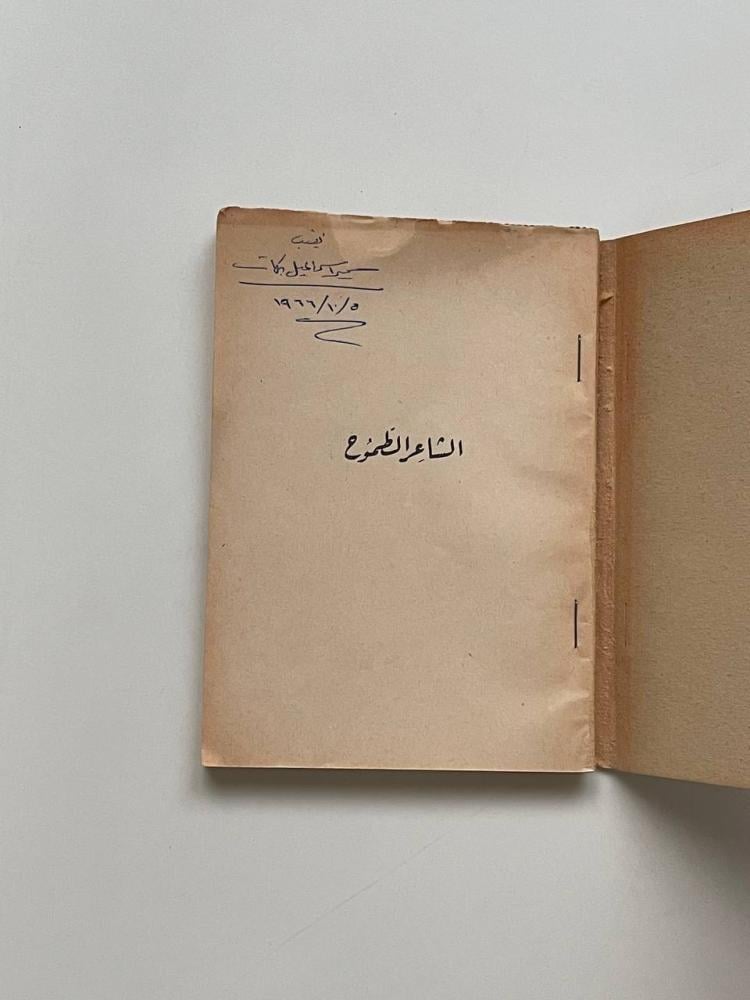 سمير اسماعيل بركات
١٩٦٦/١٠/٥
الشاعر الطَّمُوح